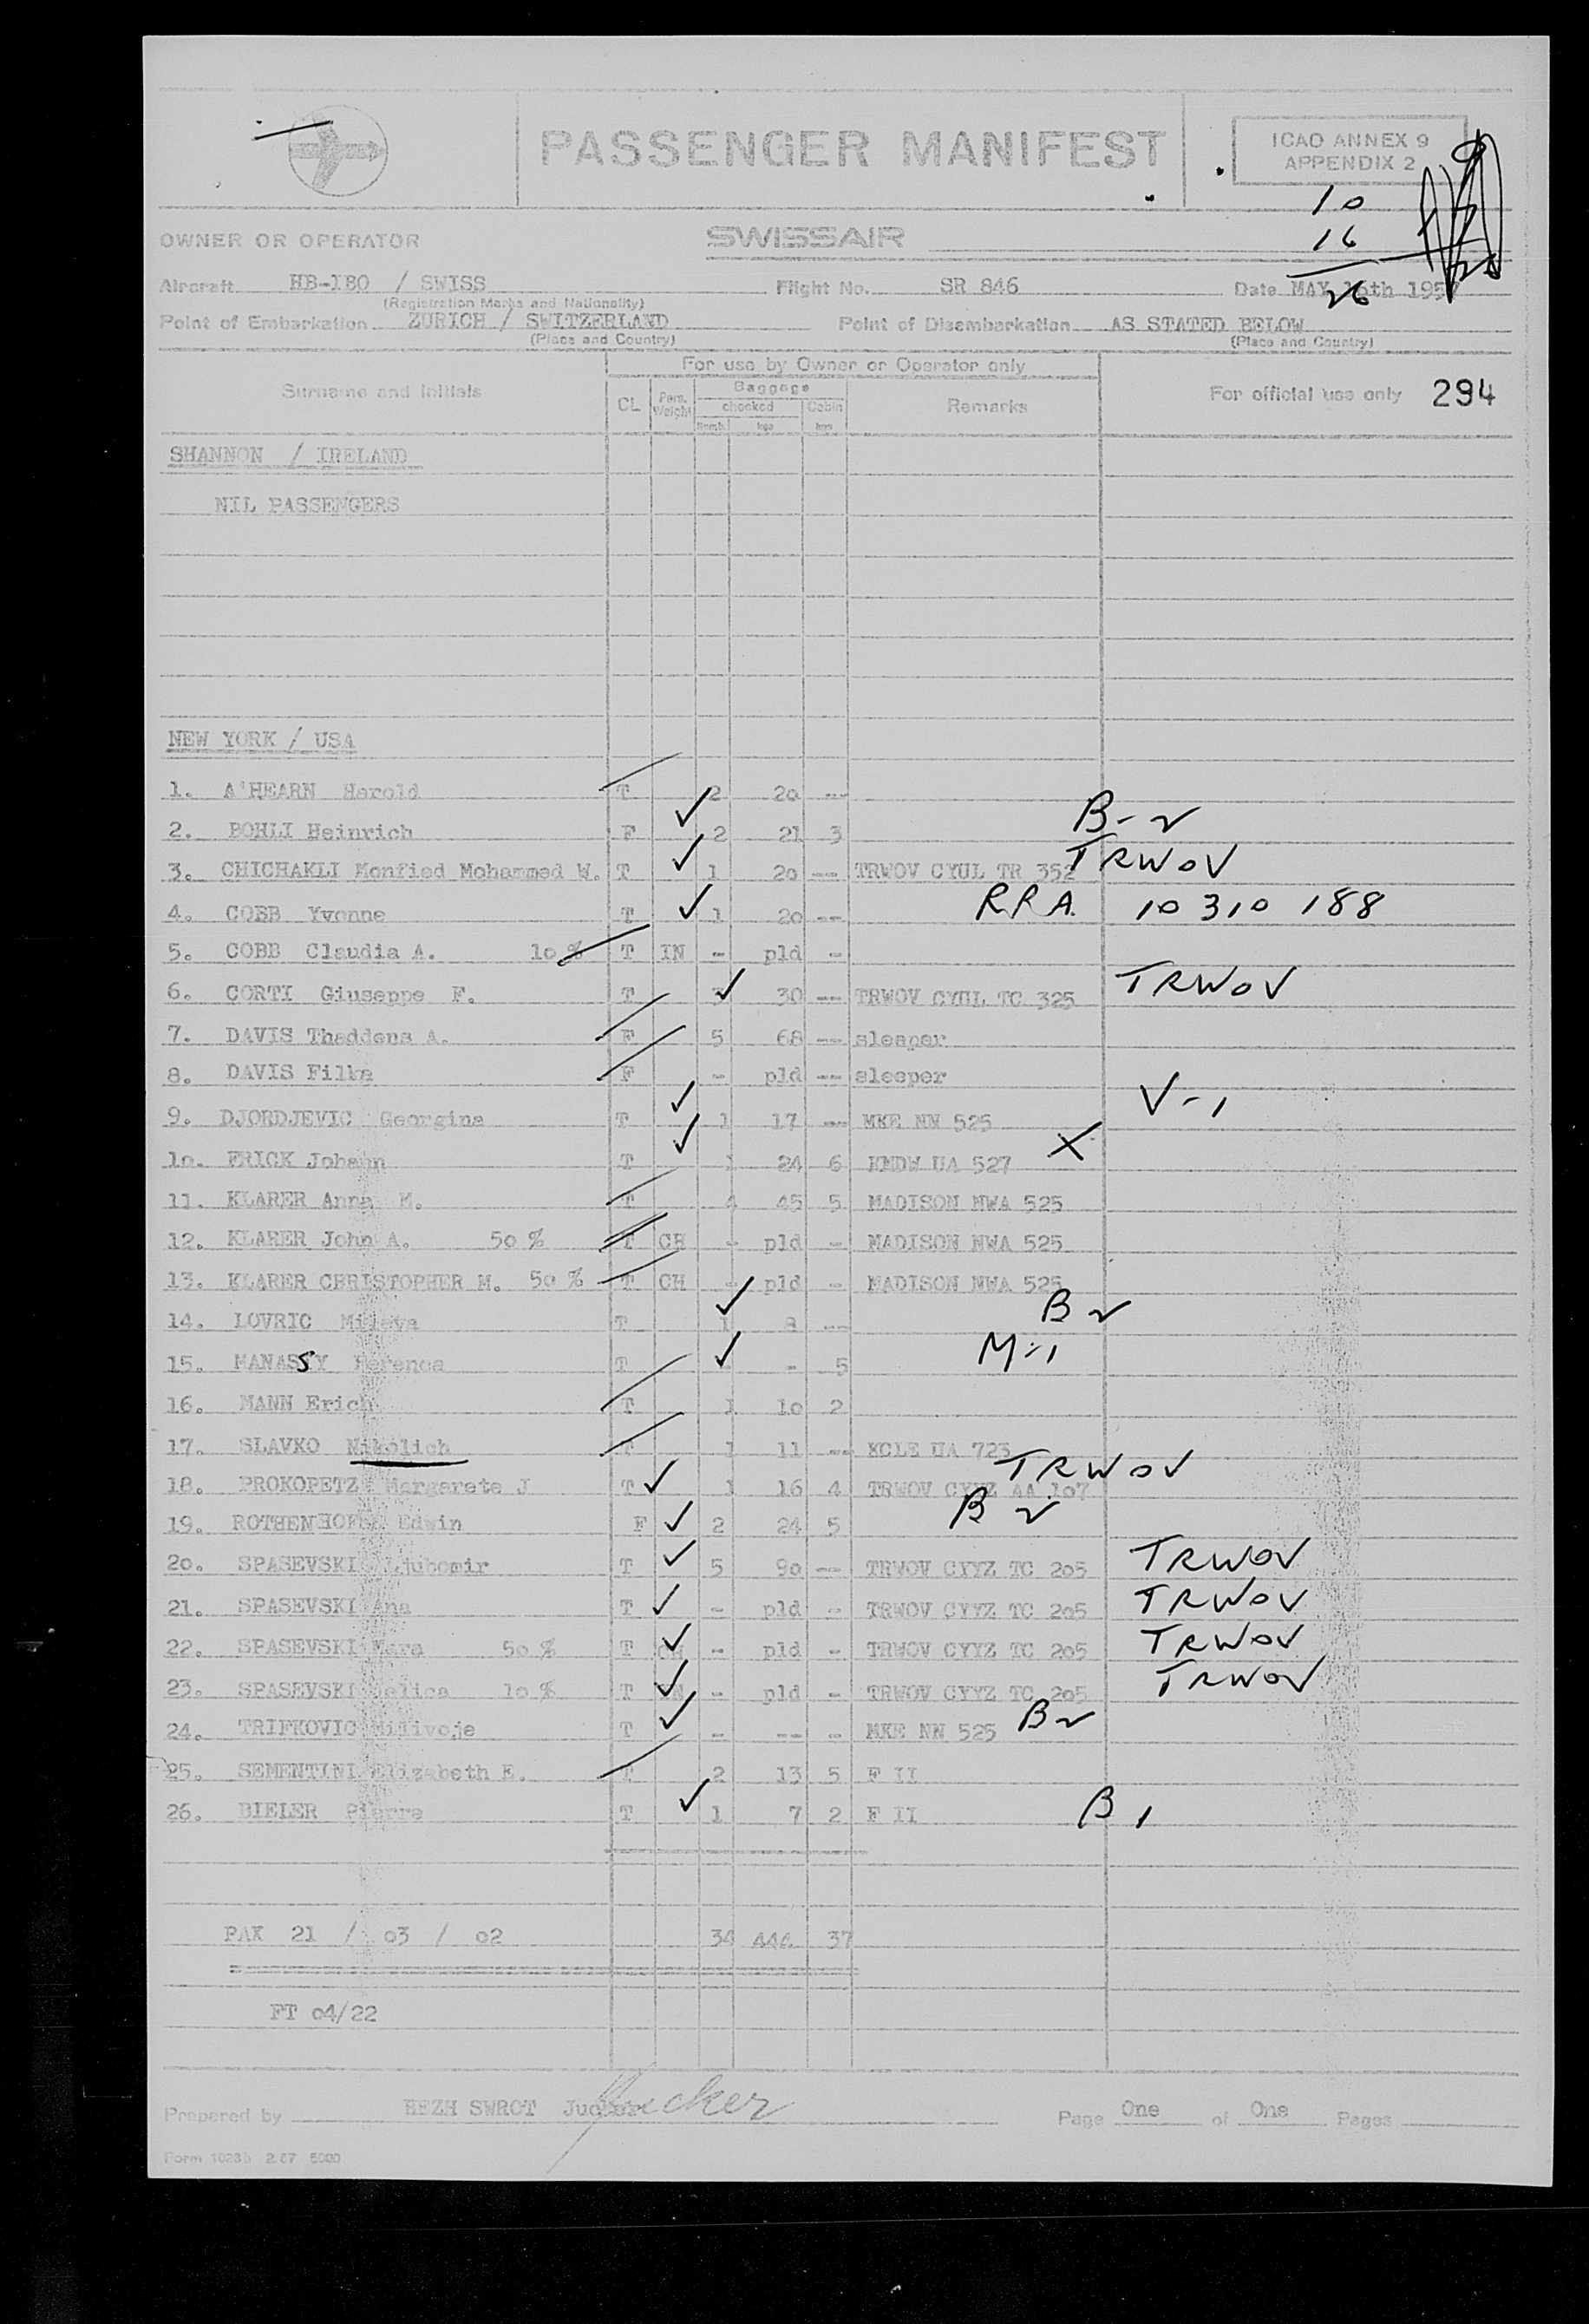 PASSENGER MANIFEST
ICAO ANNEX 9
APPENDIX 2
10
16
26
OWNER OR OPERATOR SWISSAIR
Aircraft HB-IBO / SWISS Flight No. SR 846 Date MAY 16th 1957
(Registration Marks and Nationality)
Point of Embarkation ZURICH / SWITZERLAND Point of Disembarkation AS STATED BELOW
(Place and Country) (Place and Country)
For use by Owner or Operator only
Surname and Initials CL Pass. Weight Baggage checked Numb. kgs Cabin kgs Remarks For official use only 294
SHANNON / IRELAND
NIL PASSENGERS
NEW YORK / USA
1. A'HEARN Harold T 2 20 --
2. BOHLI Heinrich F 2 21 3 B-2
3. CHICHAKLI Monfied Mohammed W. T 1 20 -- TRWOV CYUL TR 352 TRWOV
4. COBB Yvonne T 1 20 -- RRA 10 310 188
5. COBB Claudia A. 10 % T IN - pld -
6. CORTI Giuseppe F. T 3 30 -- TRWOV CYUL TC 325 TRWOV
7. DAVIS Thaddens A. F 5 68 -- sleeper
8. DAVIS Filka F - pld -- sleeper
9. DJORDJEVIC Georgina T 1 17 -- MKE NW 525 V-1
10. ERICK Johann T 1 24 6 KMDW UA 527 X
11. KLARER Anna M. T 4 45 5 MADISON NWA 525
12. KLARER John A. 50 % T CH - pld - MADISON NWA 525
13. KLARER CHRISTOPHER M. 50 % T CH - pld - MADISON NWA 525
14. LOVRIC Mileva T 1 8 -- B 2
15. MANASSY T - - 5 M-1
16. MANN Erich T 1 10 2
17. SLAVKO Nikolich T 1 11 -- KCLE UA 723
18. PROKOPETZ Margarete J T 1 16 4 TRWOV CYYZ AA 107 TRWOV
19. Edwin F 2 24 5 B 2
20. SPASEVSKI Ljubomir T 5 90 -- TRWOV CYYZ TC 205 TRWOV
21. SPASEVSKI Ana T - pld - TRWOV CYYZ TC 205 TRWOV
22. SPASEVSKI Mara 50 % T CH - pld - TRWOV CYYZ TC 205 TRWOV
23. SPASEVSKI 10 % T IN - pld - TRWOV CYYZ TC 205 TRWOV
24. TRIFKOVIC Milivoje T - -- - MKE NW 525 B 2
25. SEMENTINI Elizabeth E. T 2 13 5 F II
26. BIELER Pierre T 1 7 2 F II B 1
PAX 21 / 03 / 02 34 444 37
FT 04/22
Prepared by HEZH SWROT Jucker Page One of One Pages
Form 1023b 2.57 5000